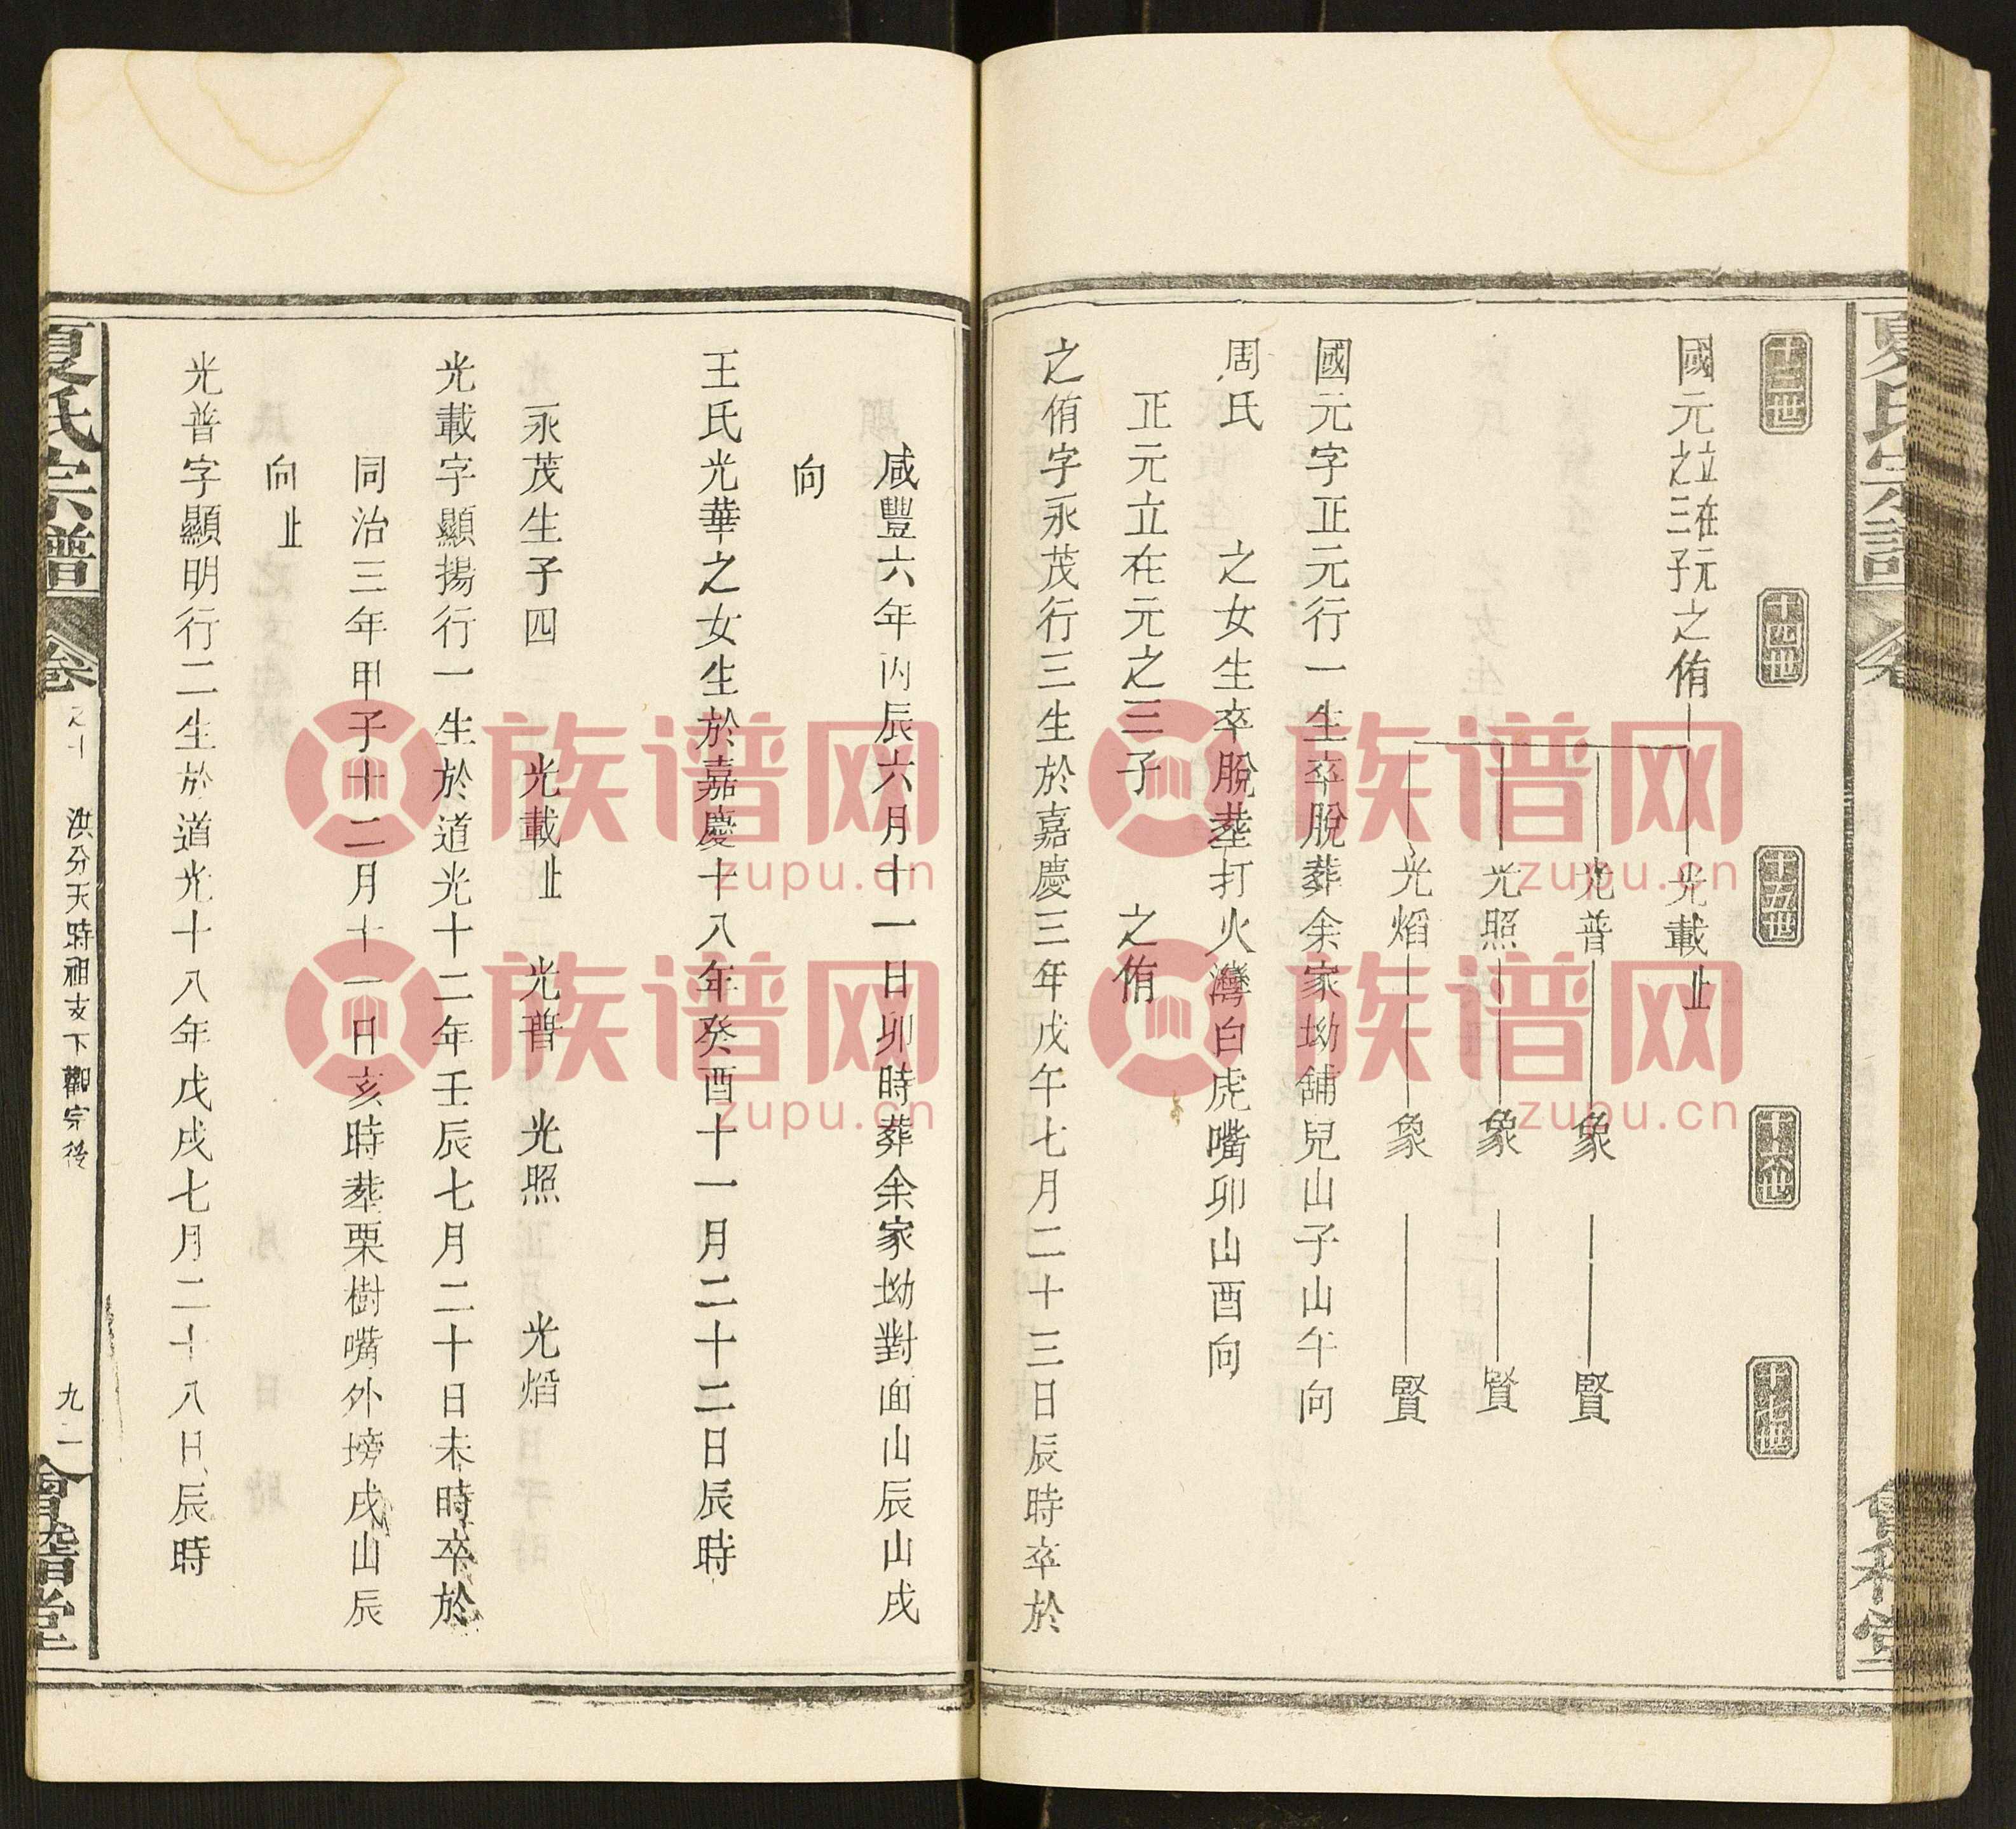 夏氏宗譜
會稽堂
十三世
十四世
十五世
十六世
十七世
國元立在元之侑
之三子
光載止
光普 象 賢
光照 象 賢
光熖 象 賢
國元字正元行一生卒脫葬余家坳舖兒山子山午向
周氏 之女生卒脫塟打火灣白虎嘴卯山酉向
正元立在元之三子 之侑
之侑字永茂行三生於嘉慶三年戊午七月二十三日辰時卒於
咸豐六年丙辰六月十一日卯時葬余家坳對面山辰山戌
向
王氏光華之女生於嘉慶十八年癸酉十一月二十二日辰時
永茂生子四 光載止 光普 光照 光熖
光載字顯揚行一生於道光十二年壬辰七月二十日未時卒於
同治三年甲子十二月十一日亥時葬栗樹嘴外塝戌山辰
向止
光普字顯明行二生於道光十八年戊戌七月二十八日辰時
夏氏宗譜
卷
之十 洪分天時祖支下觀宗後
九二
會稽堂
族谱网
zupu.cn
族谱网
zupu.cn
族谱网
zupu.cn
族谱网
zupu.cn